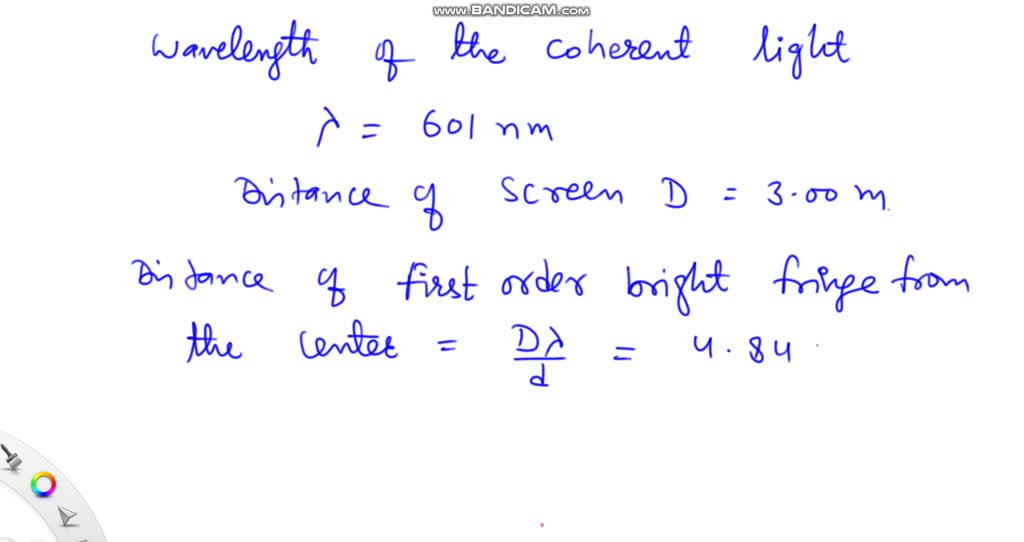 www.BANDICAM.com
Wavelength of the coherent light
λ = 601 nm
Distance of screen D = 3.00 m.
Distance of first order bright fringe from
the center = Dλ/d = 4.84